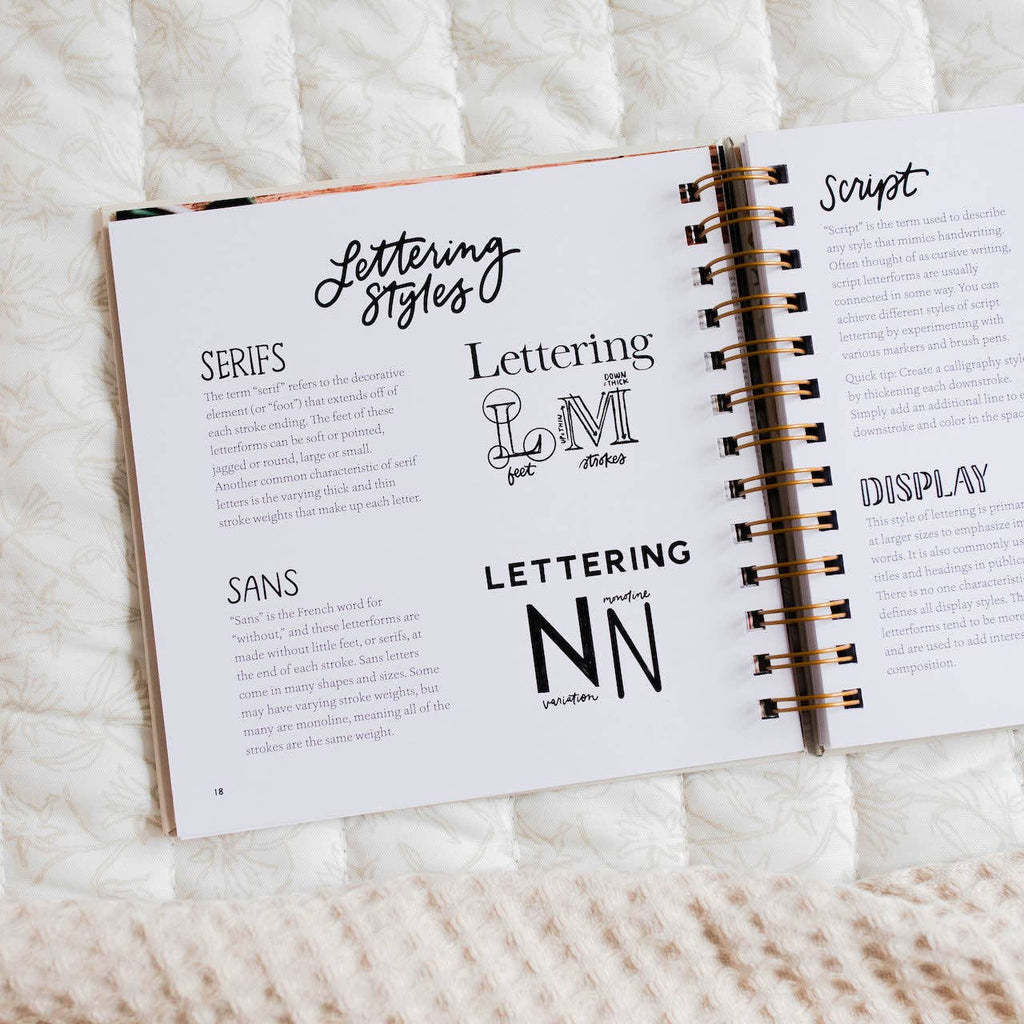 Lettering
styles
SERIFS
The term “serif” refers to the decorative
element (or “foot”) that extends off of
each stroke ending. The feet of these
letterforms can be soft or pointed,
jagged or round, large or small.
Another common characteristic of serif
letters is the varying thick and thin
stroke weights that make up each letter.
Lettering
L M
UP=THIN
DOWN
=THICK
feet
strokes
SANS
“Sans” is the French word for
“without,” and these letterforms are
made without little feet, or serifs, at
the end of each stroke. Sans letters
come in many shapes and sizes. Some
may have varying stroke weights, but
many are monoline, meaning all of the
strokes are the same weight.
LETTERING
monoline
N N
variation
18
Script
“Script” is the term used to describe
any style that mimics handwriting.
Often thought of as cursive writing,
script letterforms are usually
connected in some way. You can
achieve different styles of script
lettering by experimenting with
various markers and brush pens.
Quick tip: Create a calligraphy style
by thickening each downstroke.
Simply add an additional line to
downstroke and color in the
DISPLAY
This style of lettering is
at larger sizes to emphasize
words. It is also commonly
titles and headings in
There is no one
defines all display styles.
letterforms tend to be more
and are used to add
composition.